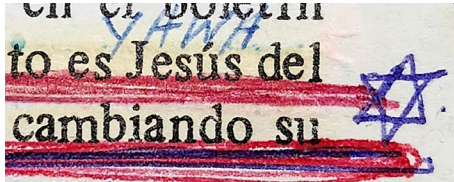 en el boletín
YAWH
to es Jesús del
cambiando su